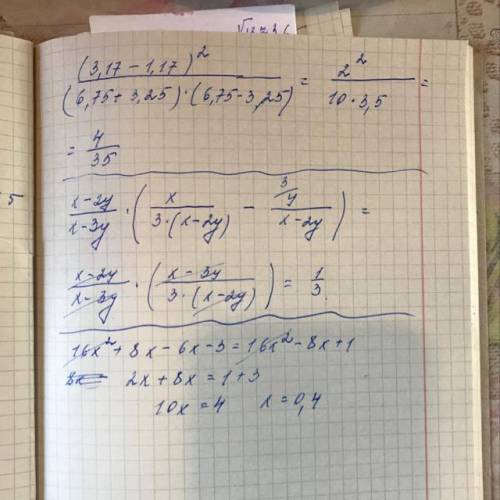 (3,17 - 1,17)² / (6,75 + 3,25)·(6,75 - 3,25) = 2² / 10·3,5 =
= 4/35
x-2y / x-3y · ( x / 3·(x-2y) - 3/ y / x-2y ) =
x-2y / x-3y · ( x - 3y / 3·(x-2y) ) = 1/3
16x² + 8x - 6x - 3 = 16x² - 8x + 1
2x + 8x = 1 + 3
10x = 4 x = 0,4